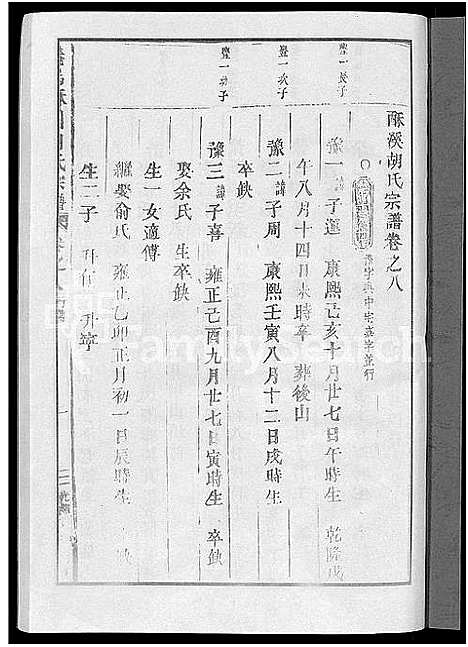 酥溪胡氏宗譜卷之八
豫字與中宅嘉字並行
豐一長子
豫一 諱子蓮 康熙己亥十月廿七日午時生 乾隆戊
午八月十四日未時卒 葬後山
豐一次子
豫二 諱子周 康熙壬寅八月十二日戌時生
卒缺
豐一次子
豫三 諱子喜 雍正己酉九月廿七日寅時生 卒缺
娶余氏 生卒缺
生一女適傅
繼娶俞氏 雍正乙卯正月初一日辰時生 卒缺
生二子 升有 升寧
FamilySearch